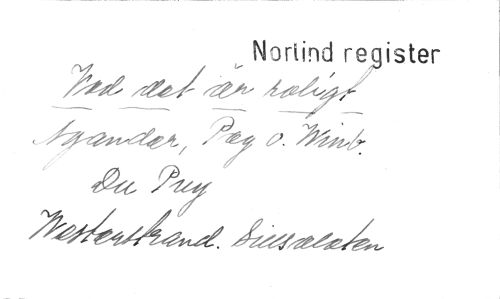 Norlind register
Vad det är roligt
Nyander, Pag o. Wint.
Du Puy
Westerstrand. Sillsalaten